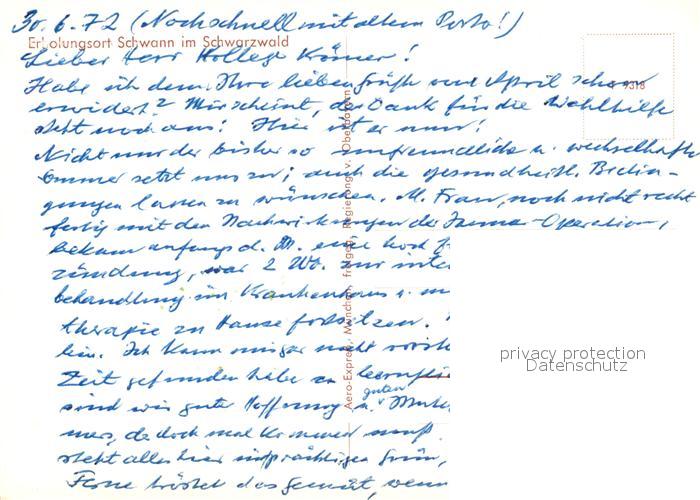 30.6.72 (Noch schnell mit altem Porto!)
Erholungsort Schwann im Schwarzwald
Lieber Herr Kollege Körner!
Habe ich denn Ihre lieben Grüße vom April schon
erwidert? Mir scheint, der Dank für die Wahlhilfe
steht noch aus! Hier ist er nun!
Nicht nur der bisher so unfreundliche u. wechselhafte
Sommer setzt uns zu; auch die gesundheitl. Bedin-
gungen lassen zu wünschen. M. Frau, noch nicht recht
fertig mit den Nachwirkungen der -Operation,
bekam anfangs d. M. eine
zündung, war 2 Wo. zur
behandlung im Krankenhaus u.
therapie zu Hause fortsetzen.
Ich kann nicht
Zeit gefunden habe zu
sind wir guter Hoffnung u. guten
da doch mal kommen muß.
steht alles hier in prächtigem Grün,
Ferne tröstet das Gemüt, wenn
9318
Aero-Expreß, München, freigeg. Regierung v. Oberbayern
privacy protection
Datenschutz